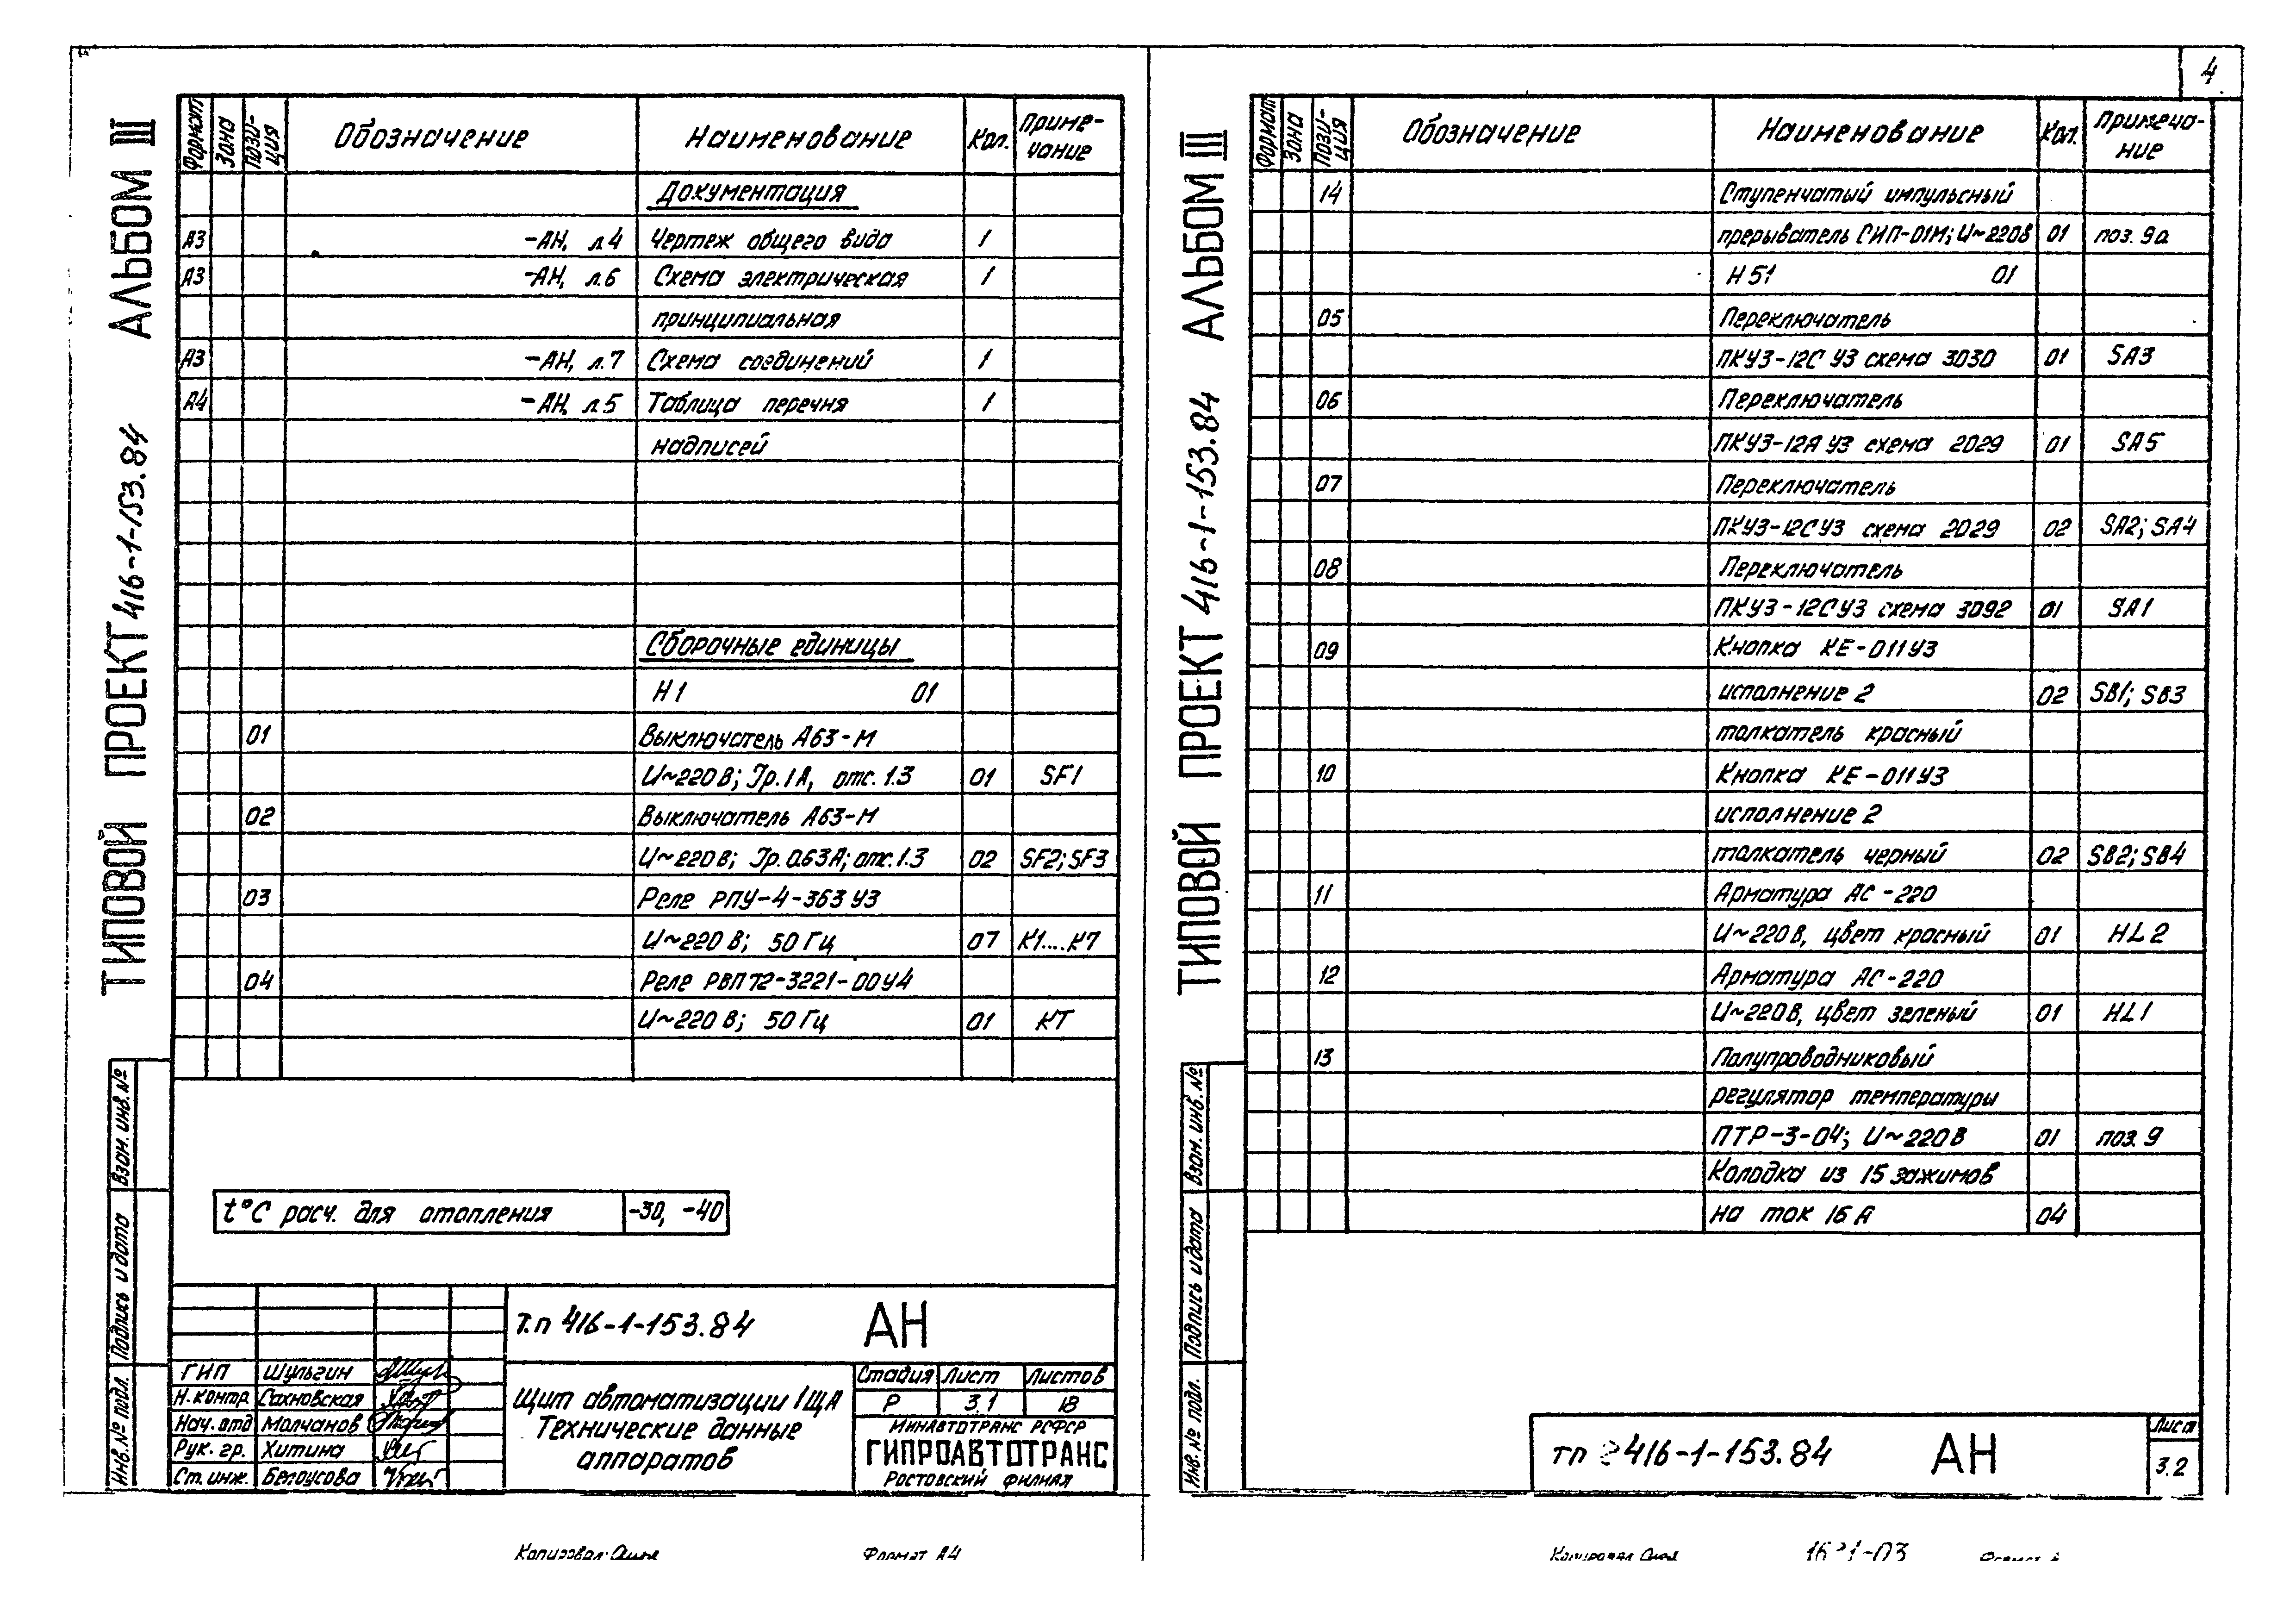 4
АЛЬБОМ III
ТИПОВОЙ ПРОЕКТ 416-1-153.84
Формат Зона Позиция Обозначение Наименование Кол. Примечание
Документация
А3 -АН, л4 Чертеж общего вида 1
А3 -АН, л.6 Схема электрическая 1
принципиальная
А3 -АН, л.7 Схема соединений 1
А4 -АН, л.5 Таблица перечня 1
надписей
Сборочные единицы
Н1 01
01 Выключатель А63-М
U~220В; Jр.1А, отс.1.3 01 SF1
02 Выключатель А63-М
U~220В; Jр.0.63А; отс.1.3 02 SF2; SF3
03 Реле РПУ-4-363 У3
U~220В; 50Гц 07 К1....К7
04 Реле РВП72-3221-00У4
U~220В; 50Гц 01 КТ
t°С расч. для отопления -30, -40
Взам. инв. №
Подпись и дата
Инв. № подл.
Т.п 416-1-153.84 АН
ГИП Шульгин
Н.контр Сахновская
Нач.отд Молчанов
Рук. гр. Хитина
Ст.инж. Белоусова
Щит автоматизации 1ЩА
Технические данные
аппаратов
Стадия Лист Листов
Р 3.1 18
Минавтотранс РСФСР
ГИПРОАВТОТРАНС
Ростовский филиал
Копировал:
Формат А4
АЛЬБОМ III
ТИПОВОЙ ПРОЕКТ 416-1-153.84
Формат Зона Позиция Обозначение Наименование Кол. Примечание
14 Ступенчатый импульсный
прерыватель СИП-01М; U~220В 01 поз. 9а
Н51 01
05 Переключатель
ПКУ3-12С У3 схема 3030 01 SA3
06 Переключатель
ПКУ3-12А У3 схема 2029 01 SA5
07 Переключатель
ПКУ3-12С У3 схема 2029 02 SA2; SA4
08 Переключатель
ПКУ3-12С У3 схема 3092 01 SA1
09 Кнопка КЕ-011У3
исполнение 2 02 SB1; SB3
толкатель красный
10 Кнопка КЕ-011У3
исполнение 2
толкатель черный 02 SB2; SB4
11 Арматура АС-220
U~220В, цвет красный 01 HL2
12 Арматура АС-220
U~220В, цвет зеленый 01 HL1
13 Полупроводниковый
регулятор температуры
ПТР-3-04; U~220В 01 поз. 9
Колодка из 15 зажимов
на ток 16А 04
Взам. инв. №
Подпись и дата
Инв. № подл.
тп 416-1-153.84 АН
Лист
3.2
Копировал